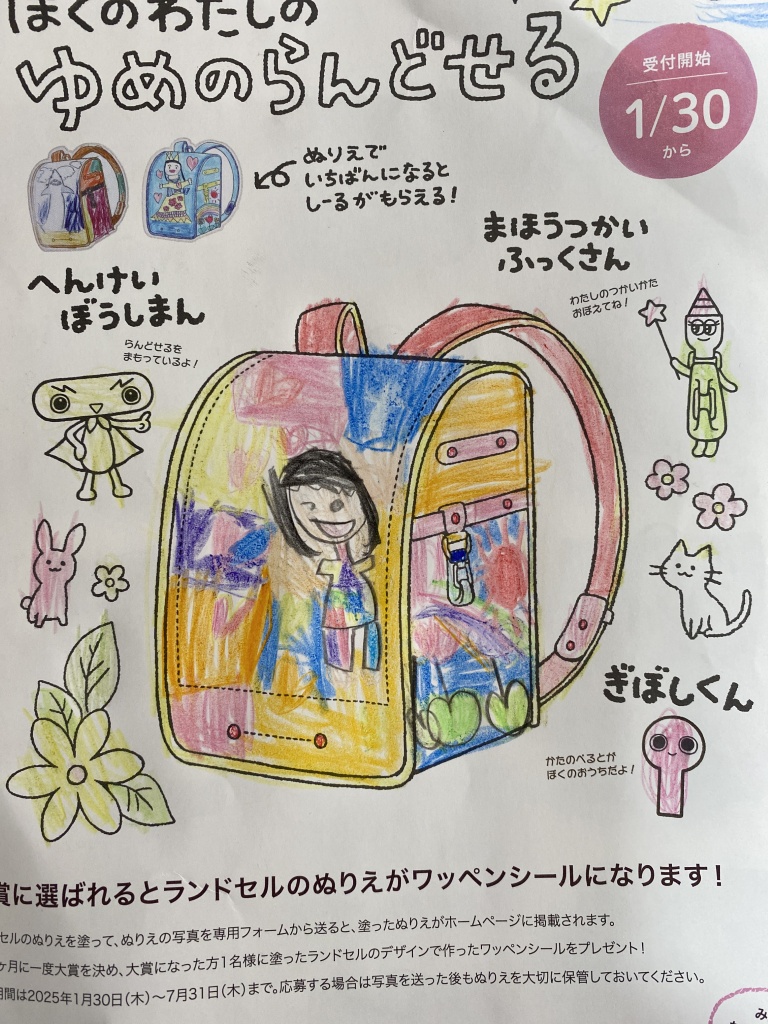 ぼくのわたしの
ゆめのらんどせる
受付開始
1/30
から
ぬりえで
いちばんになると
しーるがもらえる！
まほうつかい
ふっくさん
わたしのつかいかた
おぼえてね！
へんけい
ぼうしまん
らんどせるを
まもっているよ！
ぎぼしくん
かたのべるとが
ぼくのおうちだよ！
賞に選ばれるとランドセルのぬりえがワッペンシールになります！
セルのぬりえを塗って、ぬりえの写真を専用フォームから送ると、塗ったぬりえがホームページに掲載されます。
ヶ月に一度大賞を決め、大賞になった方1名様に塗ったランドセルのデザインで作ったワッペンシールをプレゼント！
期間は2025年1月30日（木）〜7月31日（木）まで。応募する場合は写真を送った後もぬりえを大切に保管しておいてください。